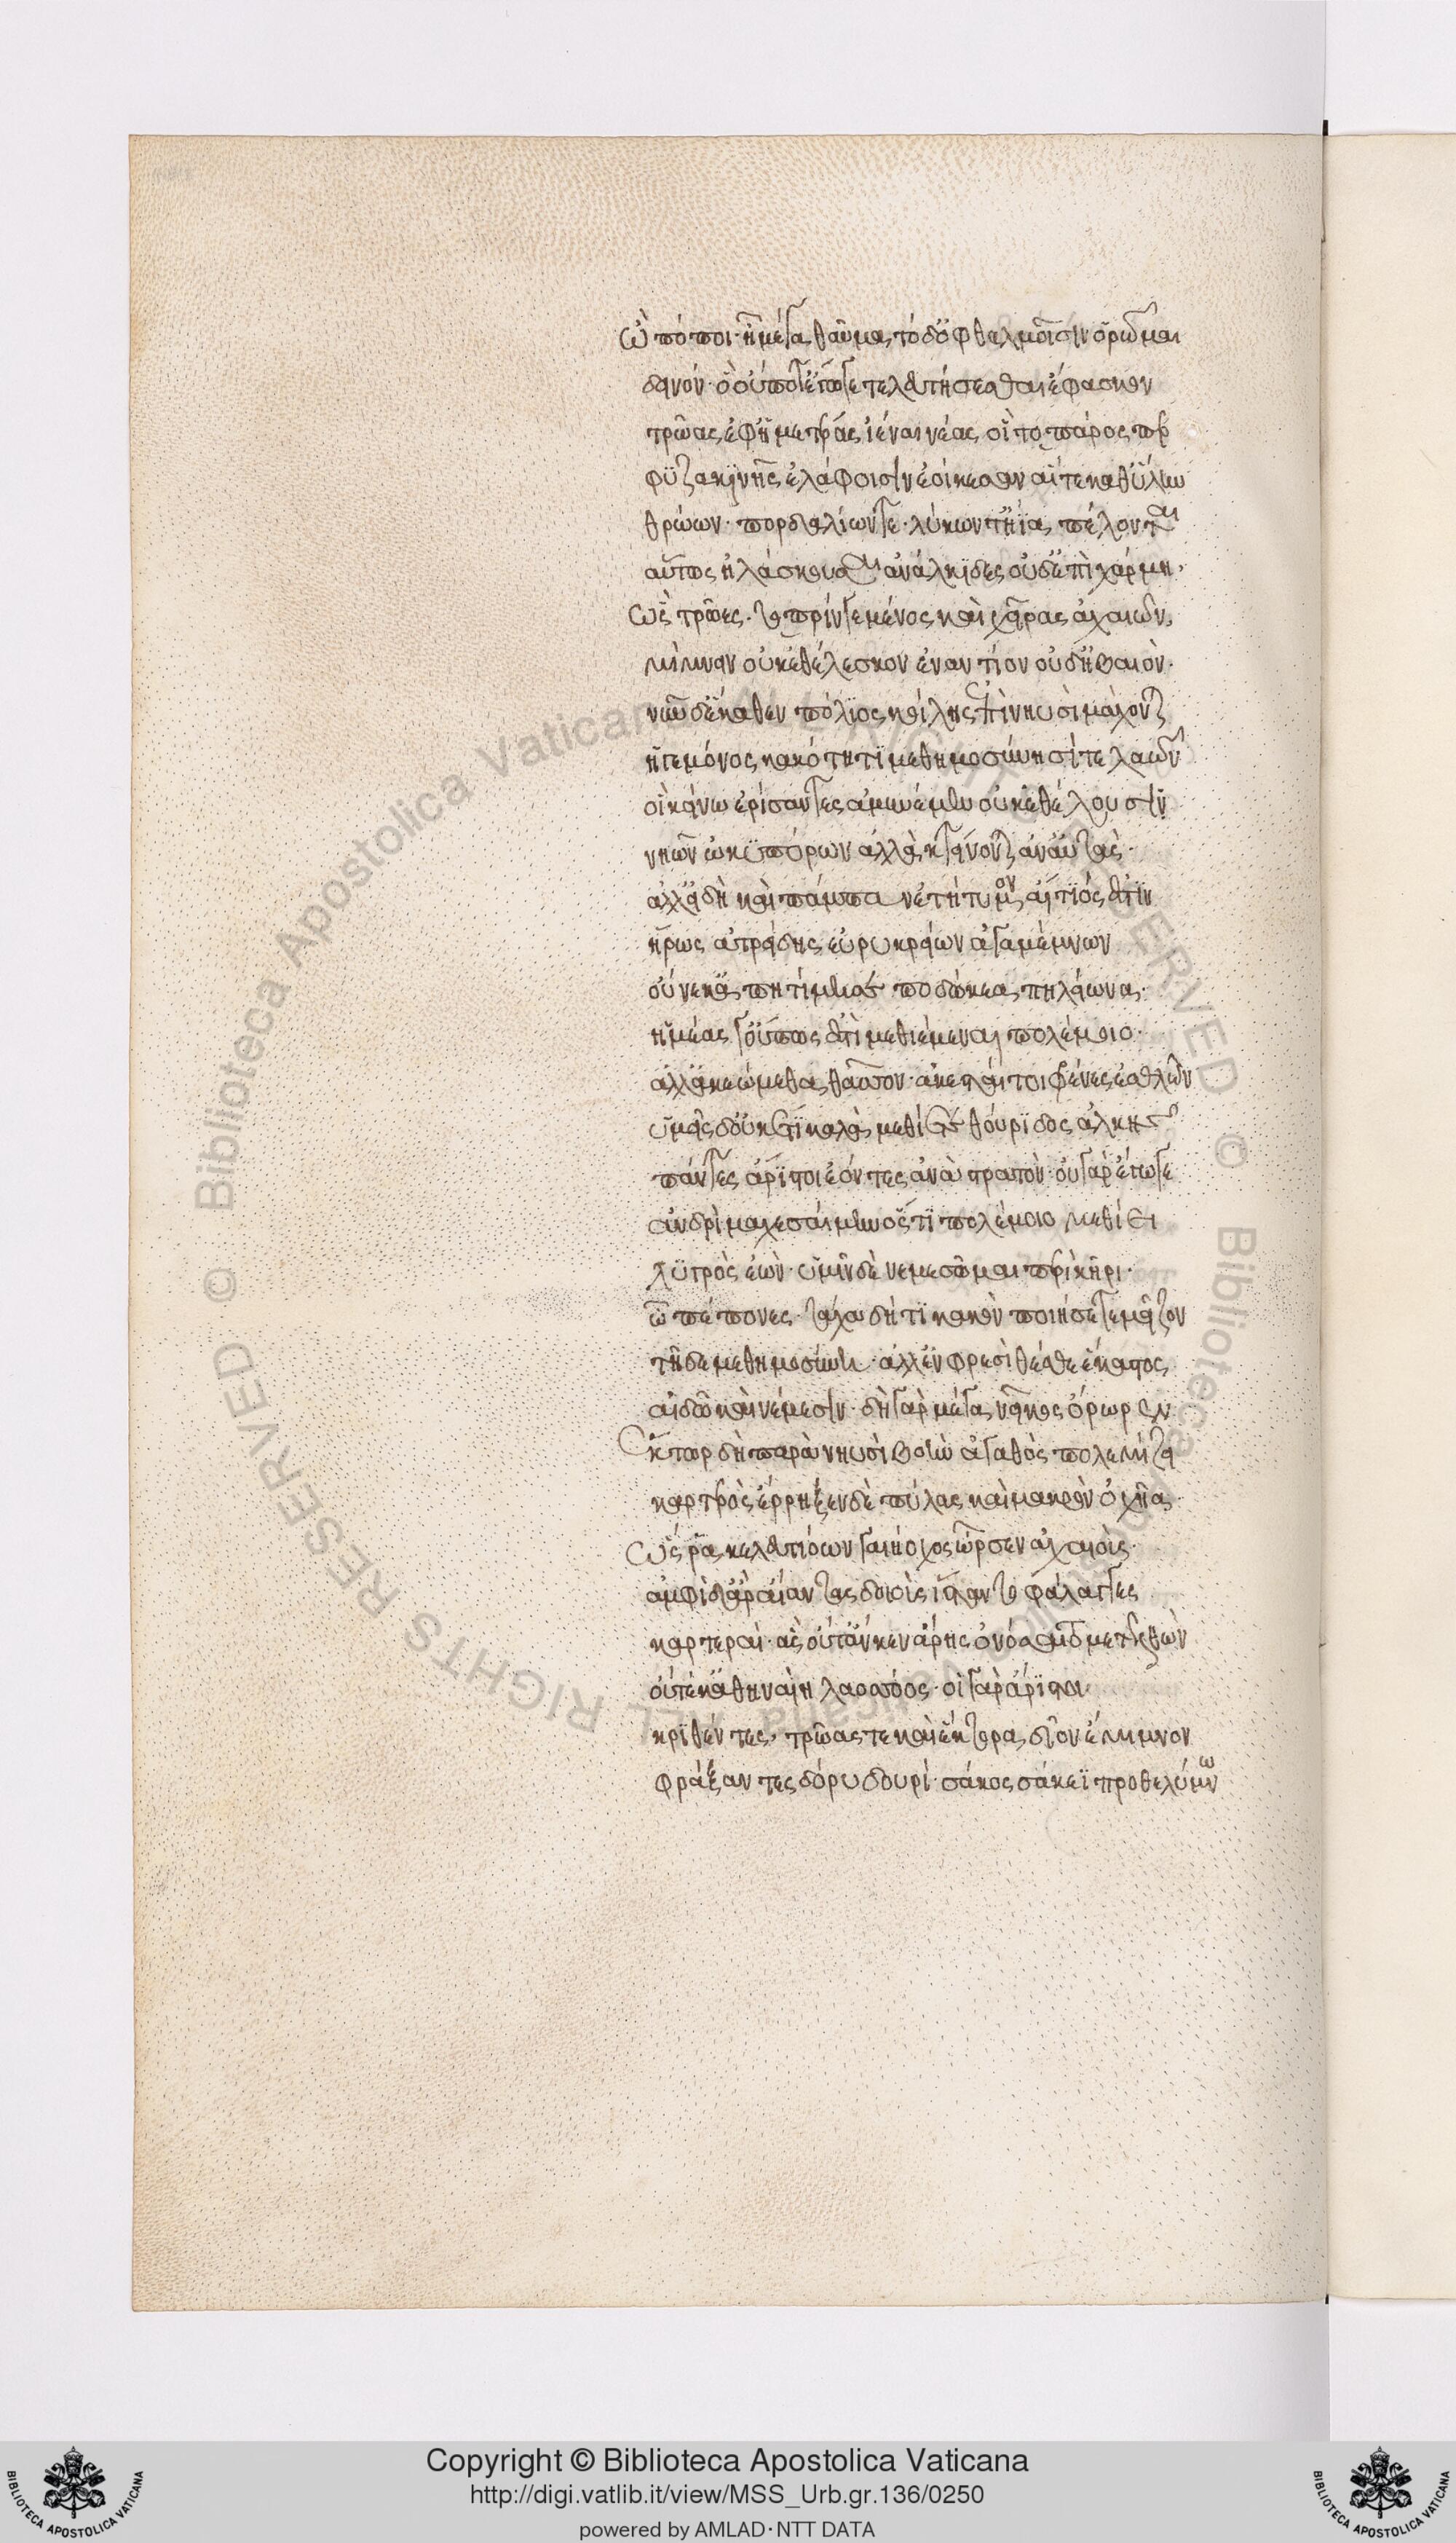 Ὢ πόποι· ἦ μέγα θαῦμα τόδ' ὀφθαλμοῖσιν ὁρῶμαι
δεινόν· ὃ οὔποτ' ἔγωγε τελευτήσεσθαι ἔφασκον
τρῶας ἐφ' ἡμετέρας ἰέναι νέας, οἳ τὸ πάρος περ
φϋζακινῇς ἐλάφοισιν ἐοίκεσαν αἵτε καθ' ὕλην
θώων· πορδαλίων τε· λύκων τ' ἤϊα πέλονται
αὔτως ἠλάσκουσαι ἀνάλκιδες οὐδ' ἔπι χάρμη·
Ὣς τρῶες· τοπρίν γε μένος καὶ χεῖρας ἀχαιῶν,
μίμνειν οὐκ ἐθέλεσκον ἐναντίον οὐδ' ἠβαιὸν·
νῦν δ' ἕκαθεν πόλϊος κοίλῃς ἐπὶ νηυσὶ μάχονται
ἡγεμόνος κακότητϊ μεθημοσύνῃσί τε λαῶν
οἳ κείνω ἐρίσαντες ἀμυνέμεν οὐκ ἐθέλουσιν
νηῶν ὠκυπόρων ἀλλὰ κτείνονται ἀν' αὐτάς·
ἀλλ' εἰ δὴ καὶ πάμπαν ἐτήτυμον αἴτϊός ἐστϊν
ἥρως ἀτρείδης εὐρυκρείων ἀγαμέμνων
οὕνεκ' ἀπητίμησε ποδώκεα πηλείωνα·
ἡμέας γ' οὔπως ἐστὶ μεθιέμεναι πολέμοιο·
ἀλλ' ἀκεώμεθα θᾶσσον· ἀκεσταί τοι φρένες ἐσθλῶν
ὑμεῖς δ' οὐκ ἔτϊ καλὰ μεθίετε θούρϊδος ἀλκῆς
πάντες ἄρϊστοι ἐόντες ἀνὰ στρατὸν· οὐ γὰρ ἔγωγε
ἀνδρὶ μαχεσαίμην ὅς τϊ πολέμοιο μεθίει
λϋγρὸς ἐὼν· ὑμῖν δὲ νεμεσῶμαι περὶ κῆρι·
ὦ πέπονες· τάχα δή τϊ κακὸν ποιήσετε μεῖζον
τῇδε μεθημοσύνη· ἀλλ' ἐν φρεσὶ θέσθε ἕκαστος
αἰδῶ καὶ νέμεσιν· δὴ γὰρ μέγα νεῖκος ὄρωρεν
Ἕκτωρ δὴ παρὰ νηυσὶ βοὴν ἀγαθὸς πολεμίζει
καρτερὸς ἔρρηξεν δὲ πύλας καὶ μακρὸν ὀχῆα·
Ὣς ῥα κελευτιόων γαιήοχος ὦρσεν ἀχαιοὺς·
ἀμφὶ δ' ἄρ' αἴαντας δοιοὺς ἵσταντο φάλαγγες
καρτεραὶ· ἃς οὔτ' ἄν κεν ἄρης ὀνόσαιτο μετελθὼν
οὔτέ κ' ἀθηναίη λαοσσόος· οἱ γὰρ ἄρϊστοι
κρϊθέντες, τρῶας τε καὶ ἕκτορα δῖον ἔμιμνον
φράξαντες δόρυ δουρὶ· σάκος σάκεϊ προθελύμνω
Copyright © Biblioteca Apostolica Vaticana
http://digi.vatlib.it/view/MSS_Urb.gr.136/0250
powered by AMLAD·NTT DATA